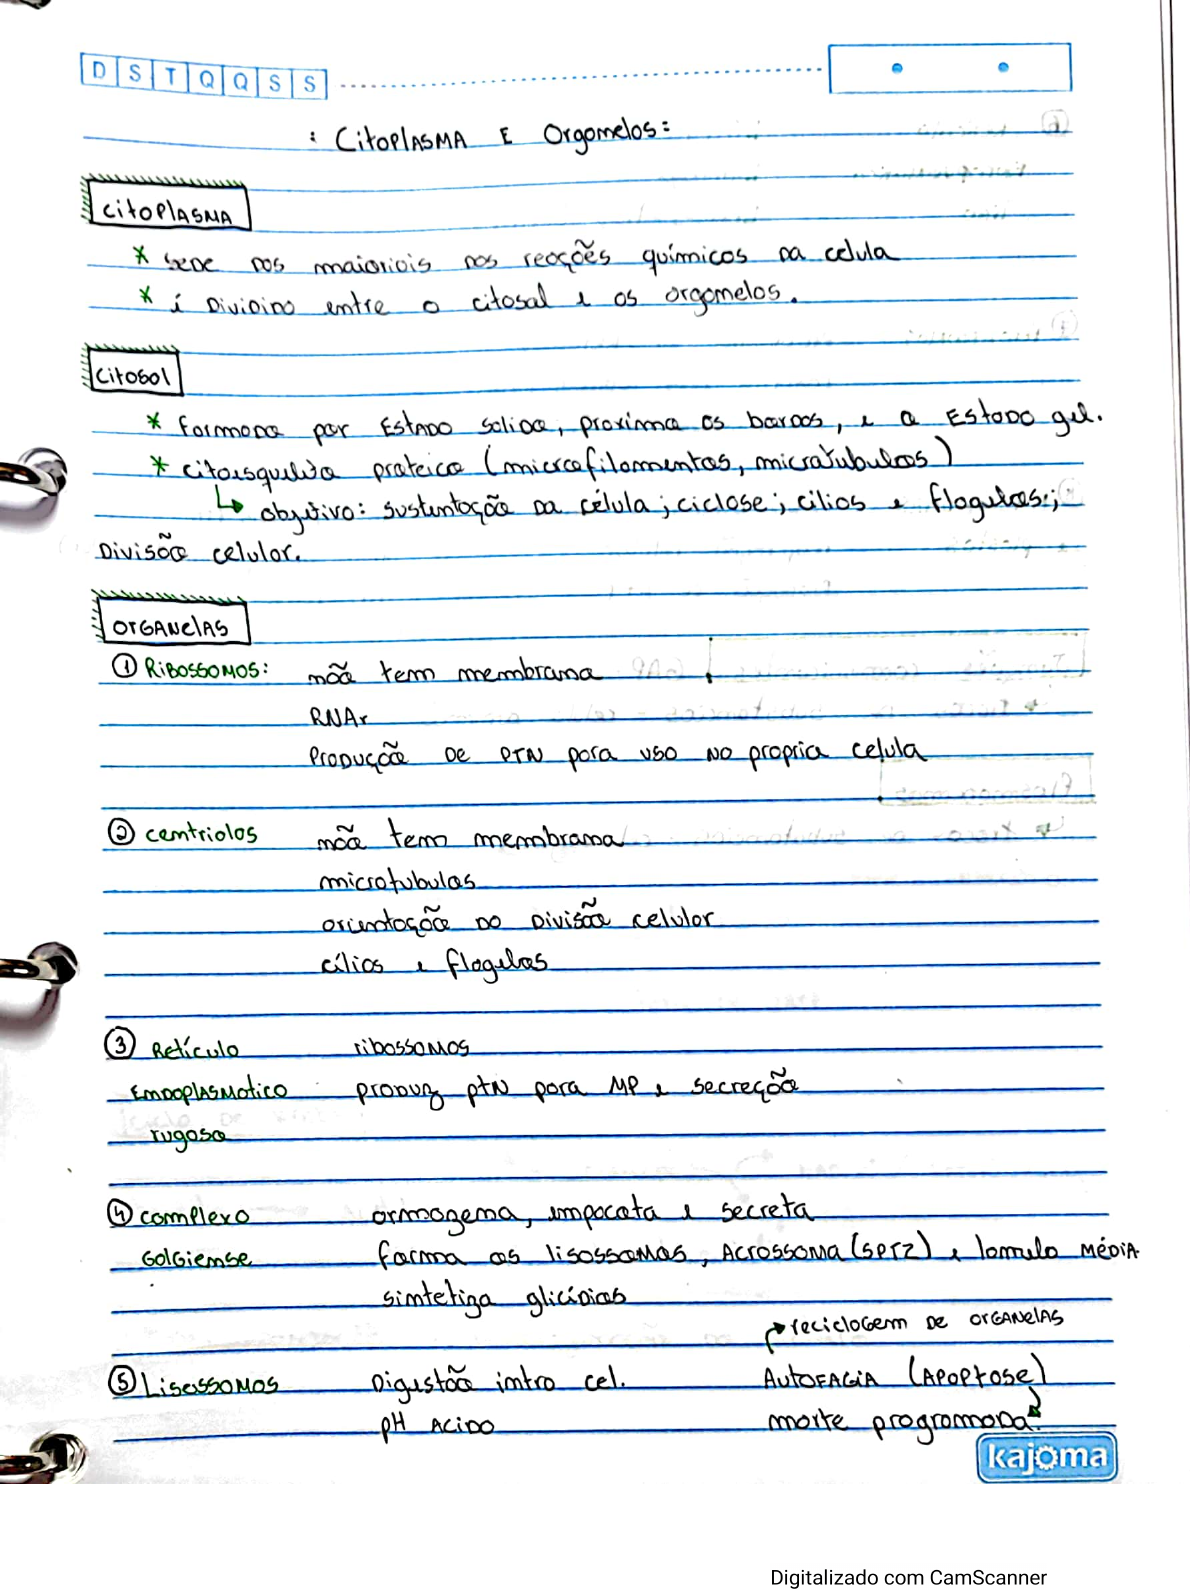 D S T Q Q S S
: Citoplasma e Organelas:
Citoplasma
* sede das maiorias das reações químicas da celula
* é dividido entre o citosol e as organelas.
Citosol
* formado por Estado solido, proximo as bordas, e a Estado gel.
* citoesqueleto proteico (microfilamentos, microtubulos)
↳ objetivo: sustentação da célula; ciclose; cilios e flagelos;
Divisão celular.
Organelas
① Ribossomos: não tem membrana
RNAr
Produção de PTN para uso na propria celula
② centriolos não tem membrana
microtubulos
orientação da Divisão celular
cílios e flagelos
③ Retículo ribossomos
Endoplasmatico produz ptn para MP e secreção
rugoso
④ complexo armazena, empacota e secreta
Golgiense forma os lisossomos, Acrossoma (sptz) e lamela média
sintetiza glicídios
→ reciclagem de organelas
⑤ Lisossomos Digestão intra cel. Autofagia (Apoptose)
pH Acido morte programada
kajoma
Digitalizado com CamScanner